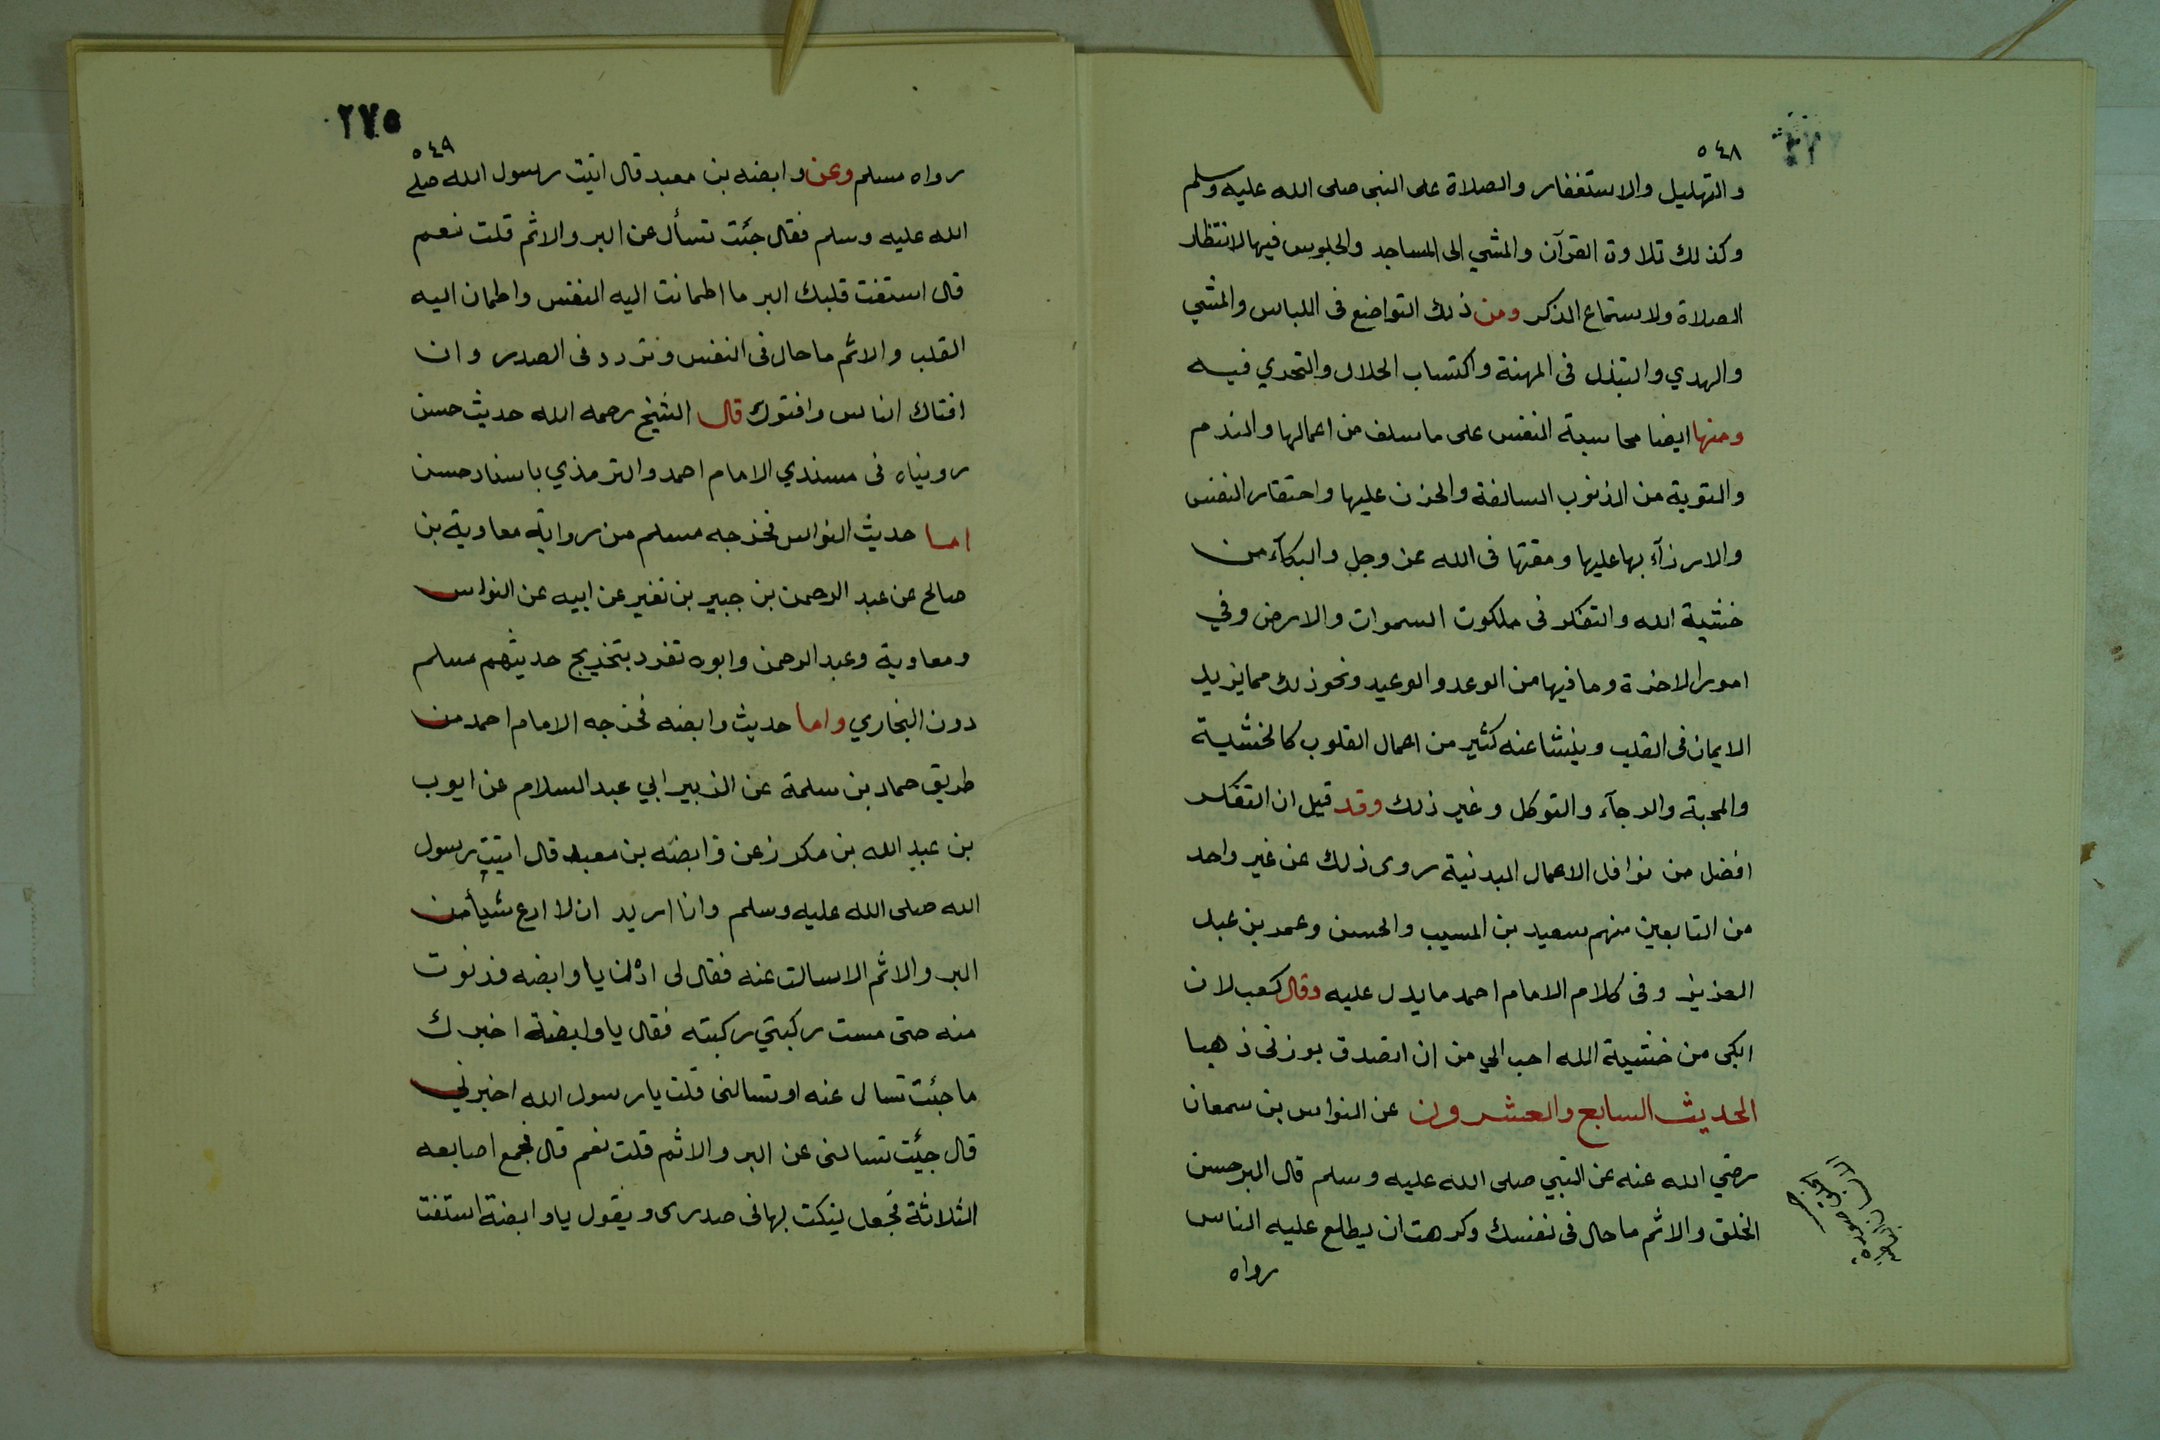 ٥٤٨
والتهليل والاستغفار والصلاة على النبى صلى الله عليه وسلم
وكذلك تلاوة القرآن والمشي الى المساجد والجلوس فيها لانتظار
الصلاة ولاستماع الذكر ومن ذلك التواضع فى اللباس والمشي
والهدي والتبذل فى المهنة واكتساب الحلال والتحري فيه
ومنها ايضا محاسبة النفس على ما سلف من اعمالها والندم
والتوبة من الذنوب السالفة والحزن عليها واحتقار النفس
والازرآء بها عليها ومقتها فى الله عز وجل والبكآء من
خشية الله والتفكر فى ملكوت السموات والارض وفي
امور الاخرة وما فيها من الوعد والوعيد ونحو ذلك مما يزيد
الايمان فى القلب وينشا عنه كثير من اعمال القلوب كالخشية
والمحبة والرجآء والتوكل وغير ذلك وقد قيل ان التفكر
افضل من نوافل الاعمال البدنية روى ذلك عن غير واحد
من التابعين منهم سعيد بن المسيب والحسن وعمر بن عبد
العزيز وفى كلام الامام احمد ما يدل عليه وقال كعب لان
ابكى من خشية الله احب الي من ان اتصدق بوزنى ذهبا
الحديث السابع والعشرون عن النواس بن سمعان
رضي الله عنه عن النبي صلى الله عليه وسلم قال البر حسن
الخلق والاثم ما حال فى نفسك وكرهت ان يطلع عليه الناس
رواه
٢٧٥
٥٤٩
رواه مسلم وعن وابضه بن معبد قال اتيت رسول الله صلى
الله عليه وسلم فقال جئت تسأل عن البر والاثم قلت نعم
قال استفت قلبك البر ما اطمانت اليه النفس واطمان اليه
القلب والاثم ما حال فى النفس وتردد فى الصدر وان
افتاك الناس وافتوك قال الشيخ رحمه الله حديث حسن
رويناه فى مسندي الامام احمد والترمذي باسناد حسن
اما حديث النواس فخرجه مسلم من رواية معاوية بن
صالح عن عبد الرحمن بن جبير بن نفير عن ابيه عن النواس
ومعاوية وعبد الرحمن وابوه تفرد بتخريج حديثهم مسلم
دون البخاري واما حديث وابضه فخرجه الامام احمد من
طريق حماد بن سلمة عن الزبير ابي عبد السلام عن ايوب
بن عبد الله بن مكرز عن وابضه بن معبد قال اتيت رسول
الله صلى الله عليه وسلم وانا اريد ان لا ادع شيأ من
البر والاثم الا سالت عنه فقال لى ادن يا وابضه فدنوت
منه حتى مست ركبتي ركبته فقال يا وابضة اخبرك
ما جئت تسال عنه او تسالنى قلت يا رسول الله اخبرني
قال جئت تسالنى عن البر والاثم قلت نعم قال فجمع اصابعه
الثلاثة فجعل ينكت بها فى صدرى ويقول يا وابضة استفت